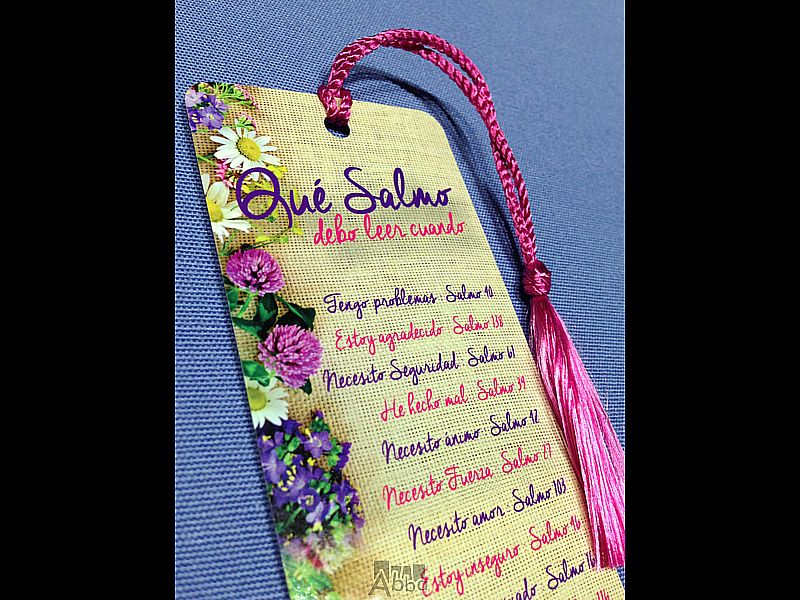 Qué Salmo
debo leer cuando
Tengo problemas: Salmo 10
Estoy agradecido: Salmo 138
Necesito Seguridad: Salmo 61
He hecho mal: Salmo 39
Necesito ánimo: Salmo 12
Necesito Fuerza: Salmo 27
Necesito amor: Salmo 103
Estoy inseguro: Salmo 16
Salmo
Abba